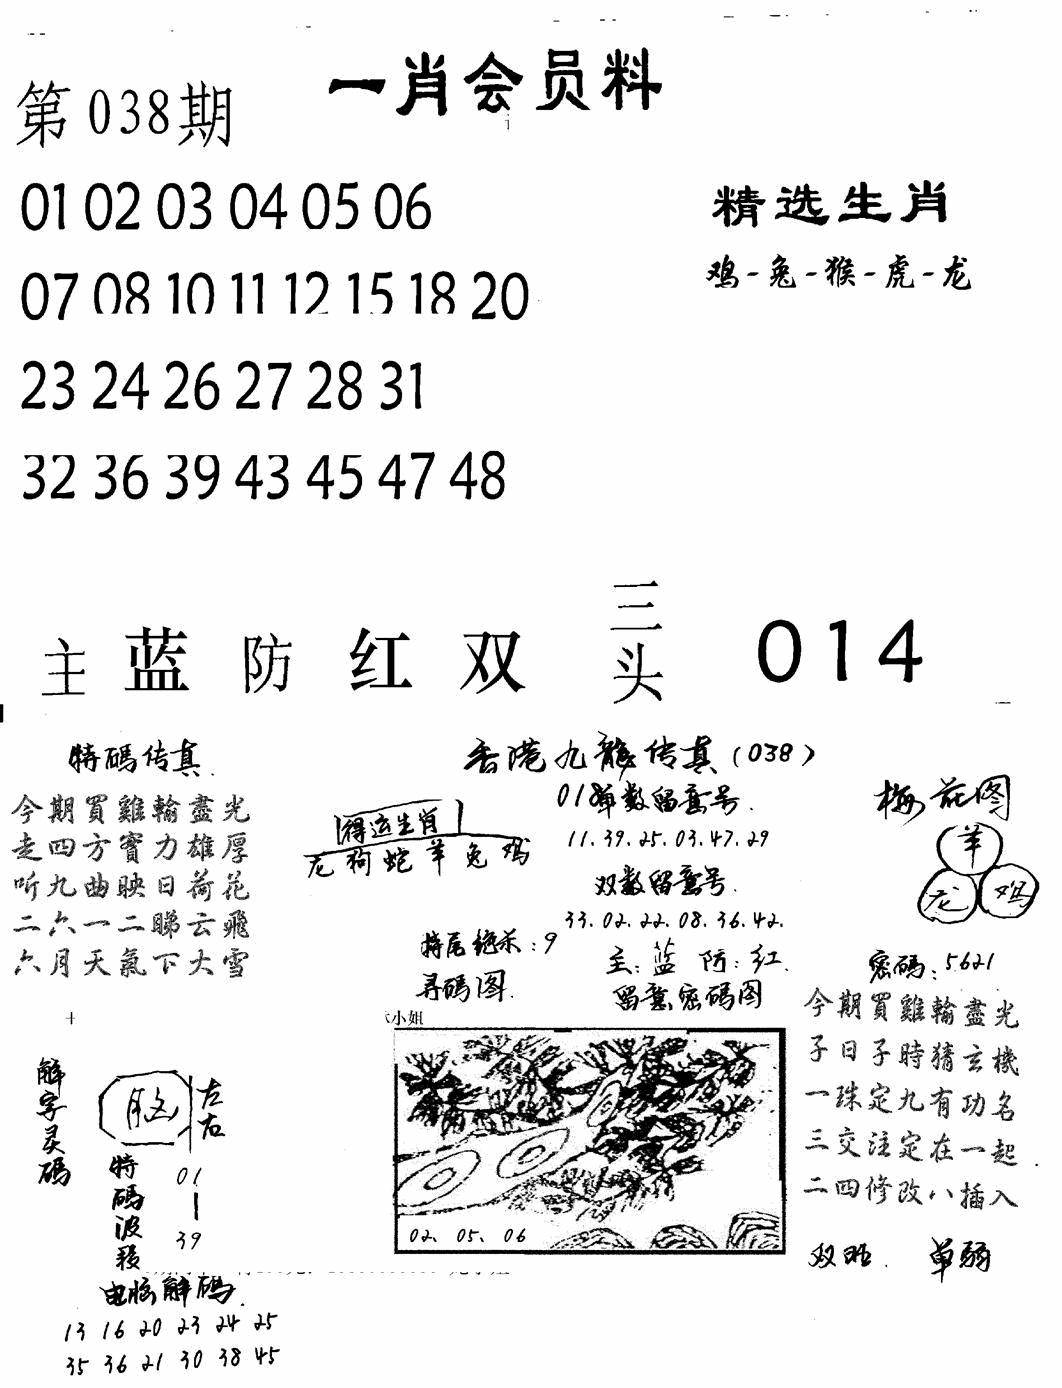 一肖会员料
第038期
01 02 03 04 05 06
07 08 10 11 12 15 18 20
23 24 26 27 28 31
32 36 39 43 45 47 48
精选生肖
鸡-兔-猴-虎-龙
主 蓝 防 红 双 三头 014
特碼传真
今期買雞輪盡光
走四方寳力雄厚
听九曲映日荷花
二六一二睇云飛
六月天氣下大雪
香港九龍传真(038)
得运生肖
龙狗蛇羊兔鸡
018单数留意号.
11.39.25.03.47.29
双数留意号.
33.02.22.08.36.42.
特尾绝杀:9
主:蓝 防:红.
寻码图.
留意密码图
梅花图
羊
龙 鸡
密碼:5621
今期買雞輪盡光
子日子時猜玄機
一珠定九有功名
三交注定在一起
二四修改八插入
双旺. 单弱
解字灵碼
脑
左右
特碼波段
01
39
小姐
02、05、06
电脑解码.
13 16 20 23 24 25
35 36 21 30 38 45